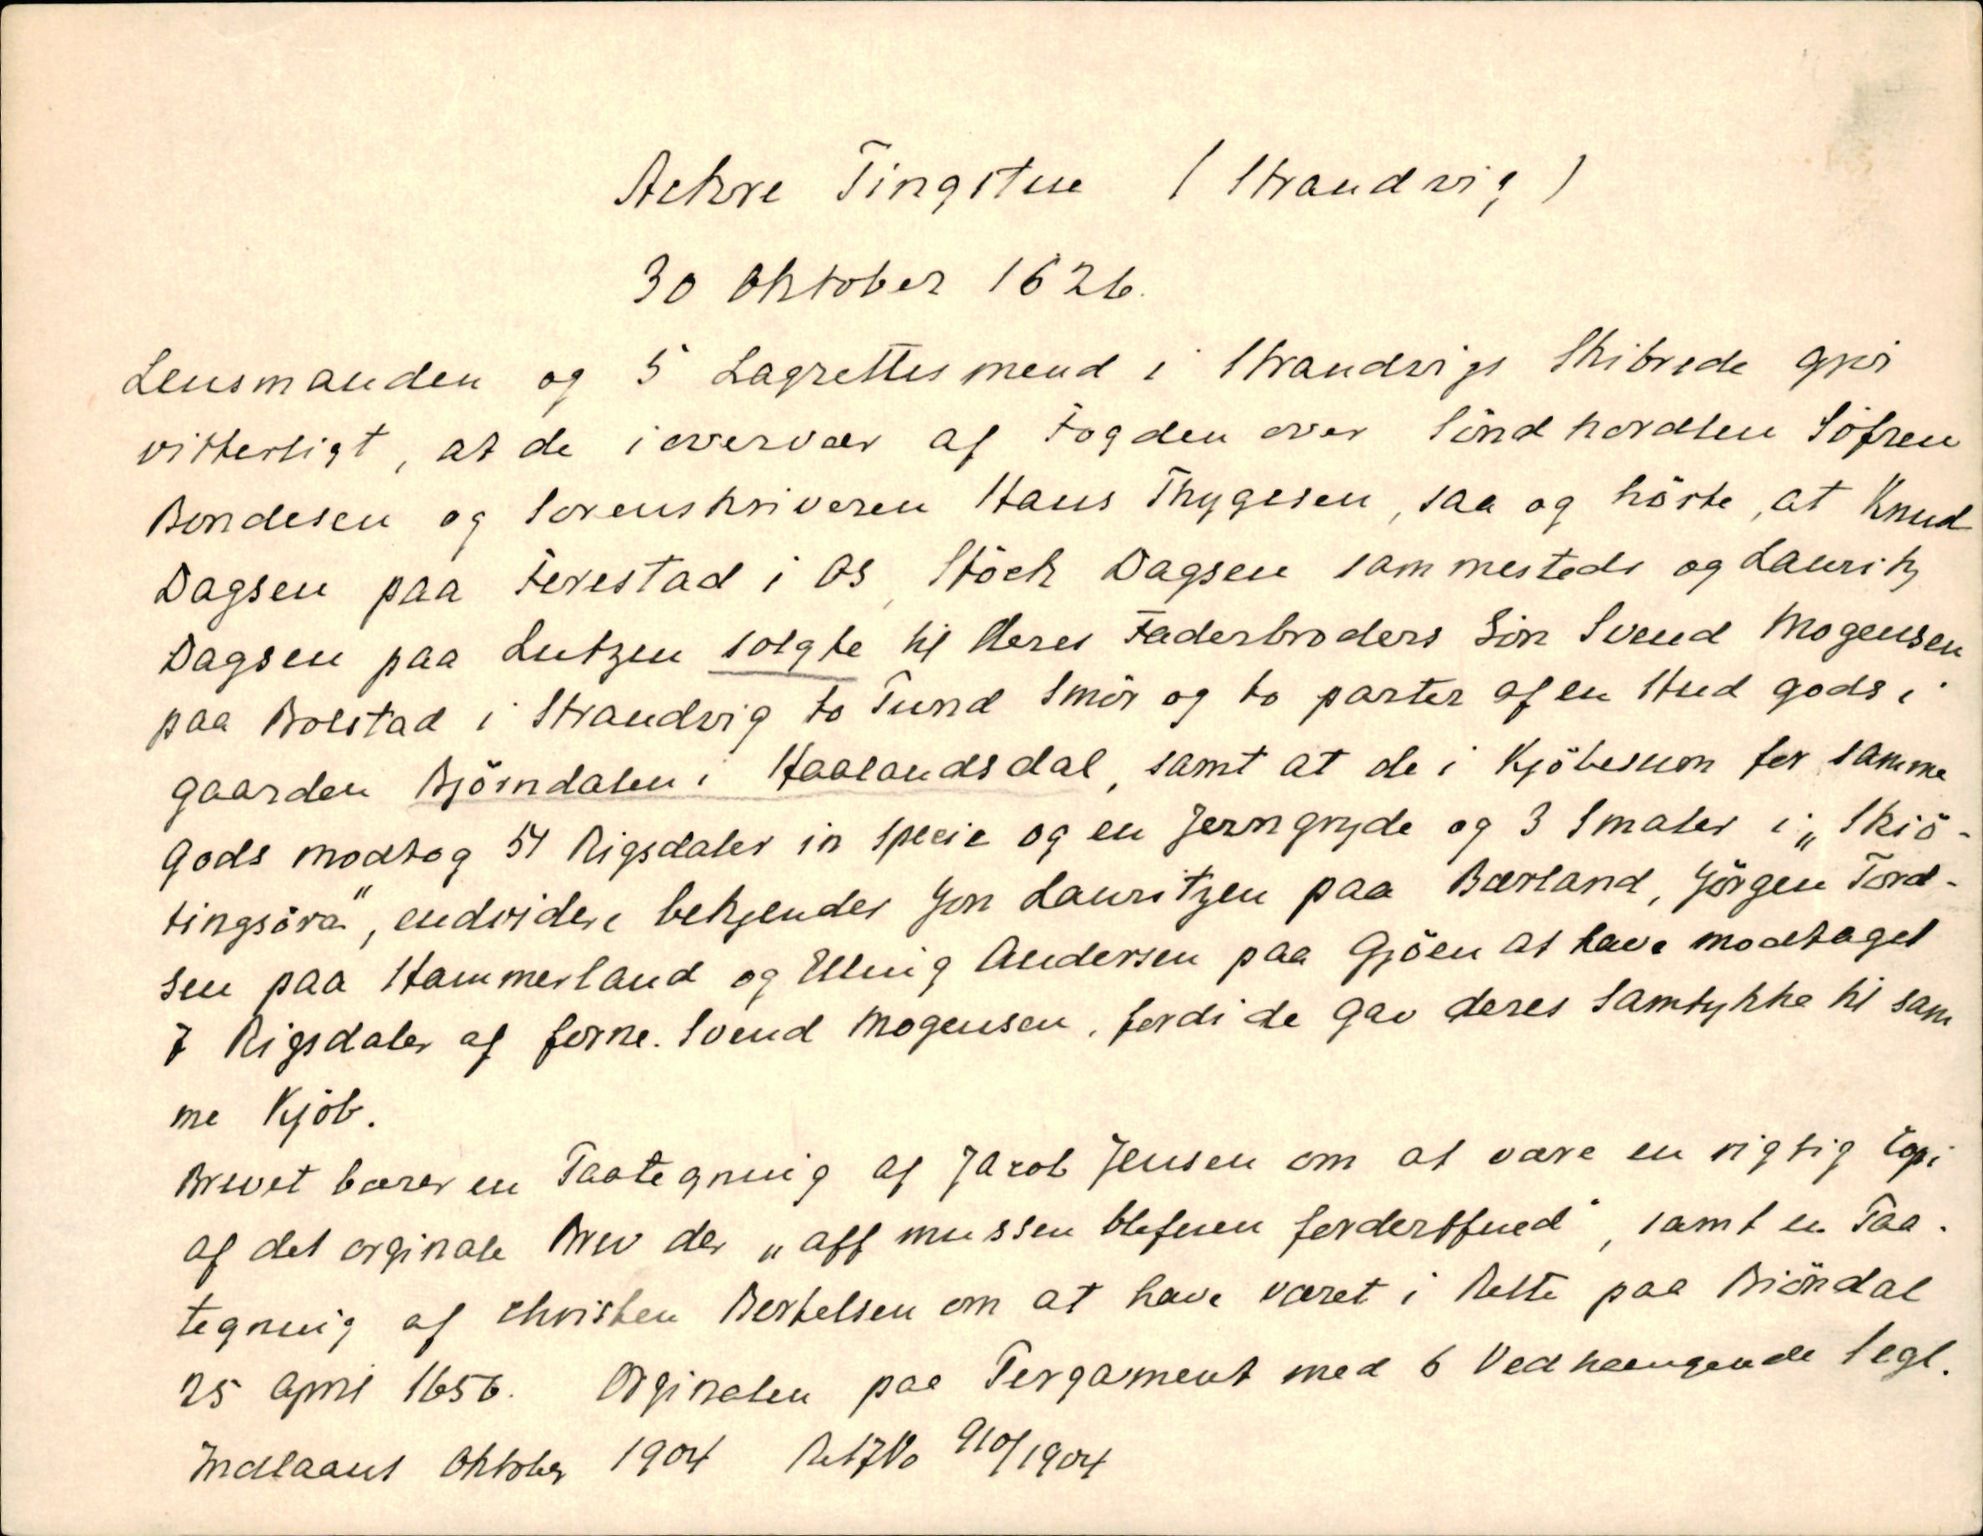 Ackre Tingstue (Strandvig)
30 Oktober 1626.
Lensmanden og 5 Lagrettesmend i Strandvigs Skibrede gjör
vitterligt, at de i overvær af Fogden over Söndhordlen Söfren
Bondesen og Sorenskriveren Hans Thygesen, saa og hörte, at Knud
Dagsen paa Ferestad i Os, Stöck Dagsen sammesteds og Lauritz
Dagsen paa Lutzen solgte til deres Faderbroders Sön Svend Mogensen
paa Bolstad i Strandvig to Pund Smör og to parter af en Hud gods i
gaarden Björndalen i Haalandsdal, samt at de i Kjöbesum for samme
Gods modtog 54 Rigsdaler in specie og en Jerngryde og 3 Smaler i „Skiö-
tingsöra“, endvidere bekjender Jon Lauritzen paa Bærland, Jörgen Tord-
sen paa Hammerland og Elling Andersen paa Gjöen at have modtaget
7 Rigsdaler af forne. Svend Mogensen, fordi de gav deres Samtykke til sam
me Kjöb.
Brevet bærer en Paategning af Jacob Jensen om at være en rigtig Copi
af det orginale Brev der „aff mussen blefuen forderffued“, samt en Paa-
tegning af Christen Bertelsen om at have været i Rette paa Biöndal
25 April 1656. Orginalen paa Pergament med 6 Vedhængende Segl.
Indlaant Oktober 1904 910/1904